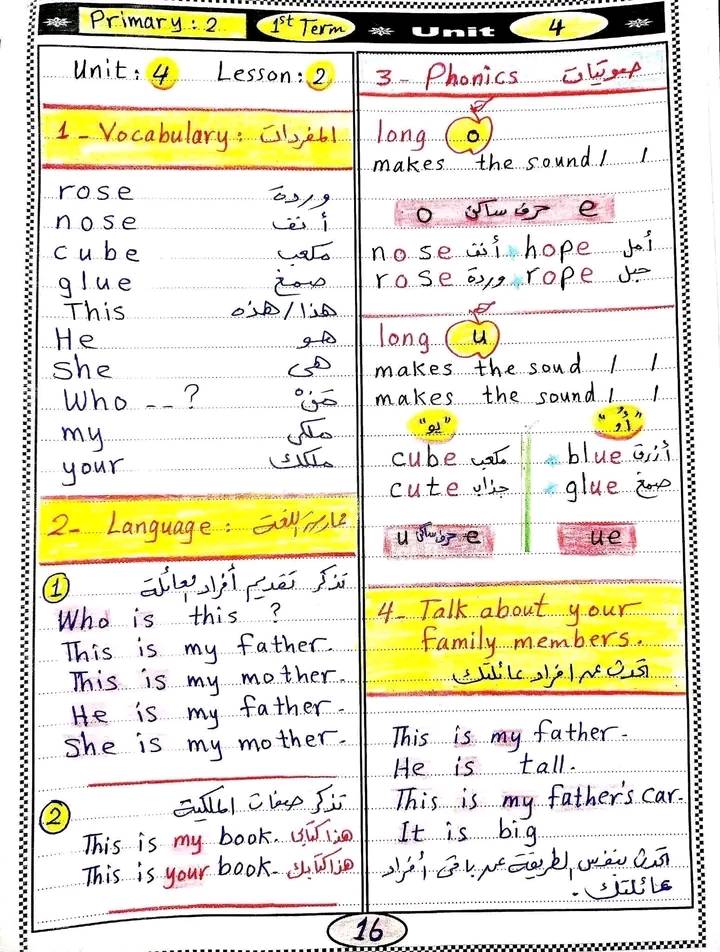 Primary : 2
1st Term
Unit
4
Unit : 4 Lesson : 2
1 - Vocabulary : المفردات
rose وردة
nose أنف
cube مكعب
glue صمغ
This هذا / هذه
He هو
She هى
Who -- ? مَنْ
my ملكى
your ملكك
2- Language : ممارسة اللغة
1 تذكر تقديم أفراد العائلة
Who is this ?
This is my father.
This is my mother.
He is my father.
She is my mother.
2 تذكر صفات الملكية
This is my book. هذا كتابى
This is your book. هذا كتابك
3 - Phonics صوتيات
long o
makes the sound / /
o حرف ساكن e
nose أنف hope أمل
rose وردة rope حبل
long u
makes the soud / /
makes the sound / /
"يو" "أُو"
cube مكعب blue أزرق
cute جذاب glue صمغ
u حرف ساكن e ue
4- Talk about your
family members.
اتحدث عن افراد عائلتك
This is my father.
He is tall.
This is my father's car.
It is big
اتحدث بنفس الطريقة عن باقى أفراد
عائلتك .
16